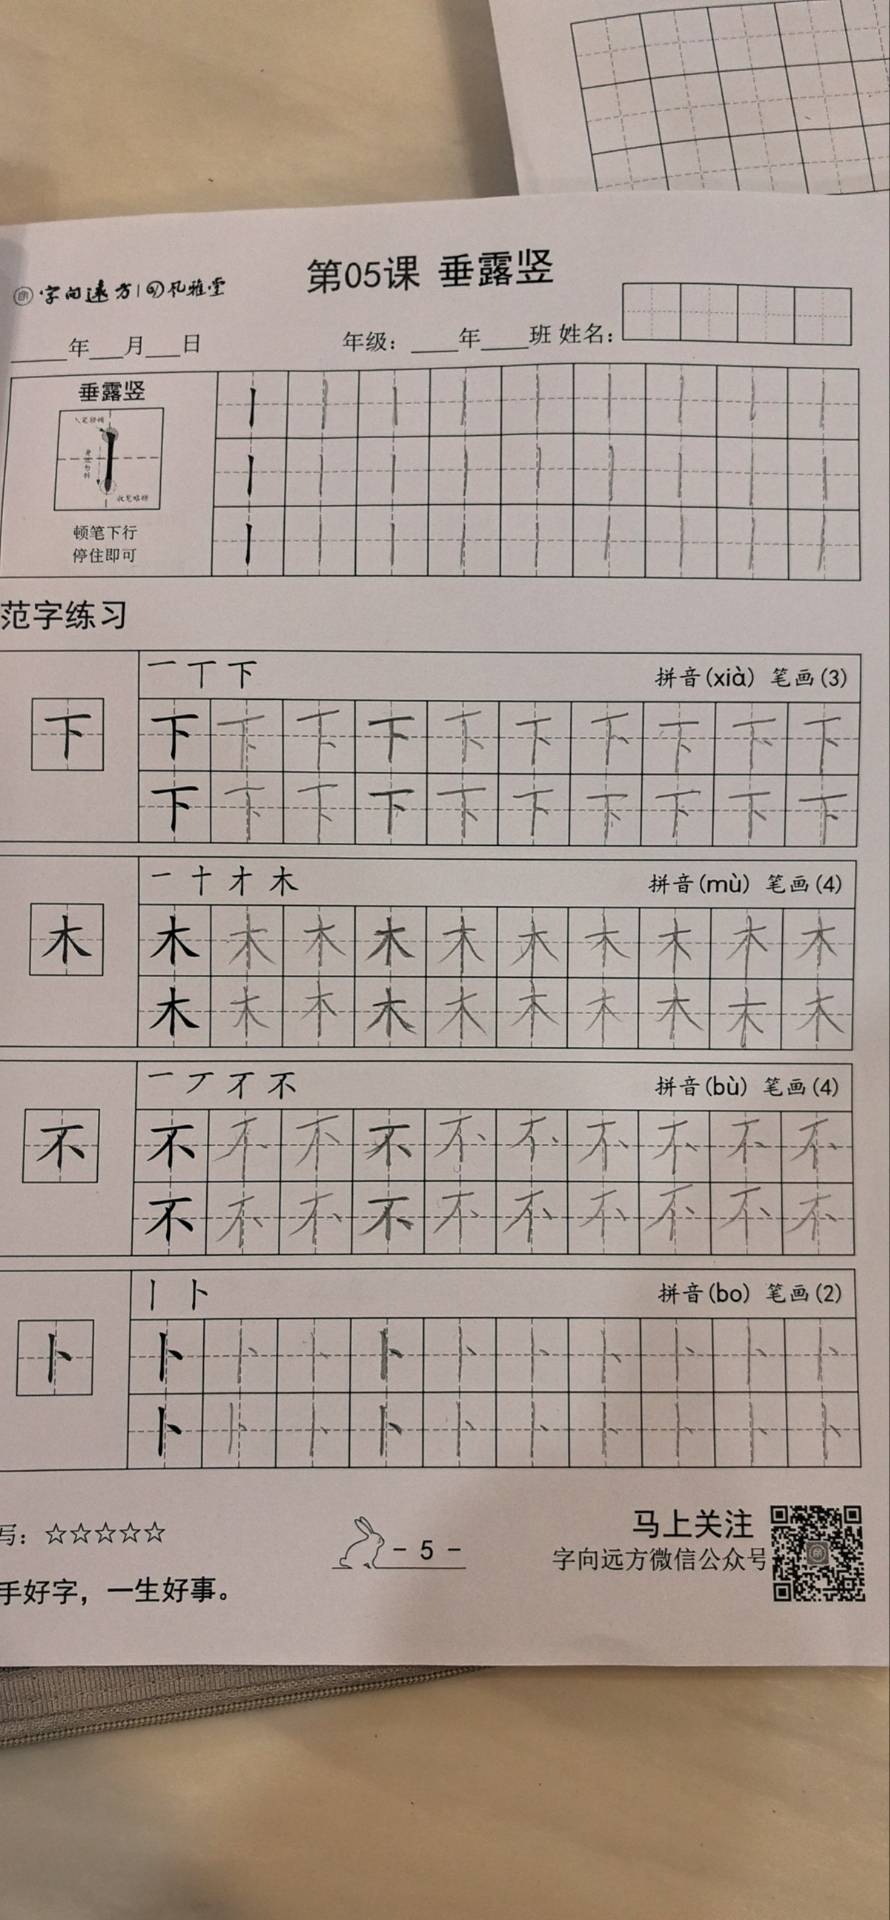 字向远方 凡雅堂
第05课 垂露竖
年 月 日 年级： 年 班 姓名：
垂露竖
顿笔下行
停住即可
范字练习
一 丅 下 拼音(xià) 笔画(3)
下 下 下 下 下 下 下 下 下 下 下
下 下 下 下 下 下 下 下 下 下
一 十 才 木 拼音(mù) 笔画(4)
木 木 木 木 木 木 木 木 木 木 木
木 木 木 木 木 木 木 木 木 木
一 丆 不 拼音(bù) 笔画(4)
不 不 不 不 不 不 不 不 不 不 不
不 不 不 不 不 不 不 不 不 不
丨 卜 拼音(bo) 笔画(2)
卜 卜 卜 卜 卜 卜 卜 卜 卜 卜 卜
卜 卜 卜 卜 卜 卜 卜 卜 卜 卜
写：☆☆☆☆☆
手好字，一生好事。
- 5 -
马上关注
字向远方微信公众号